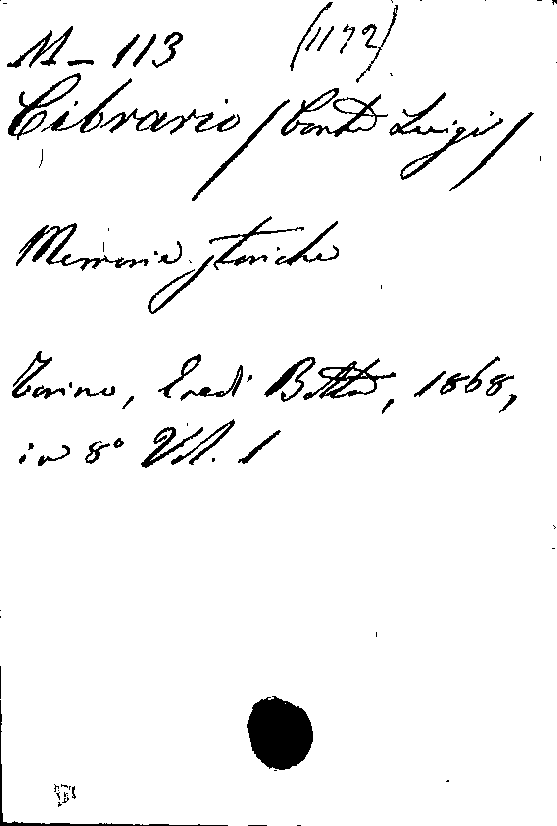 M – 113 (1172)
Cibrario / Conte Luigi /
Memorie storiche
Torino, Eredi Botta, 1868,
in 8° Vol. 1